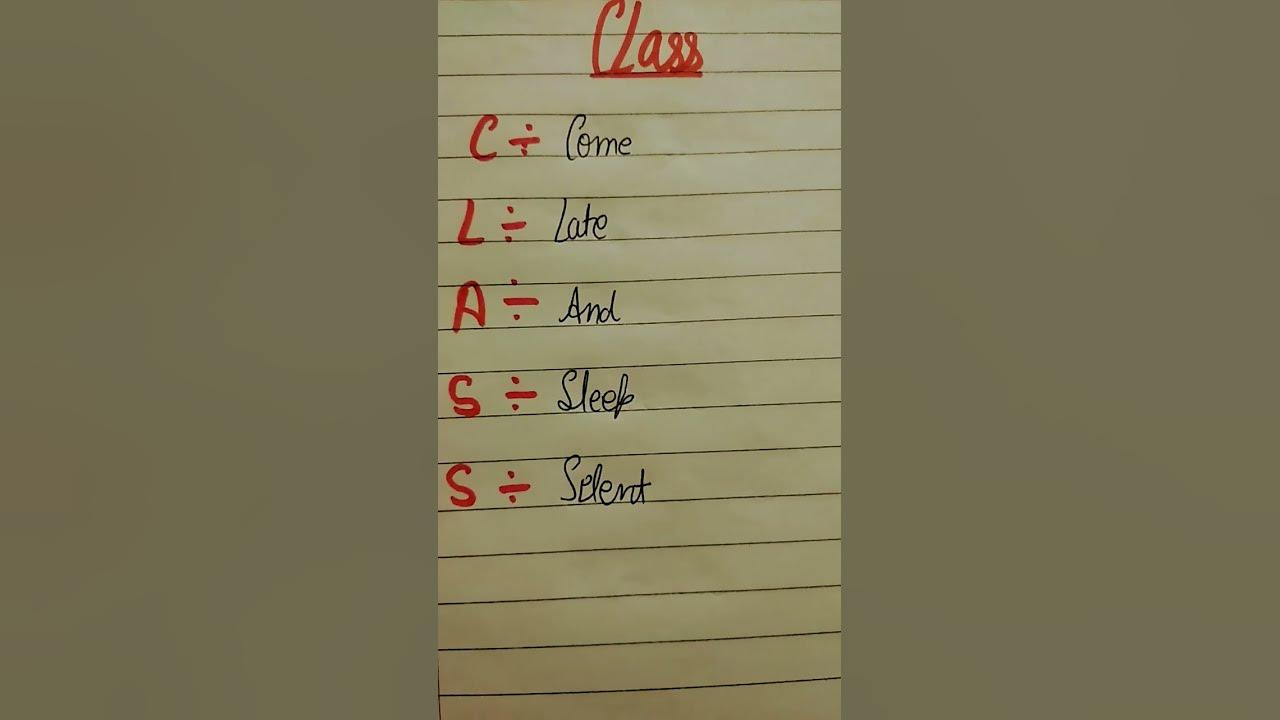 Class
C ÷ Come
L ÷ Late
A ÷ And
S ÷ Sleep
S ÷ Selent